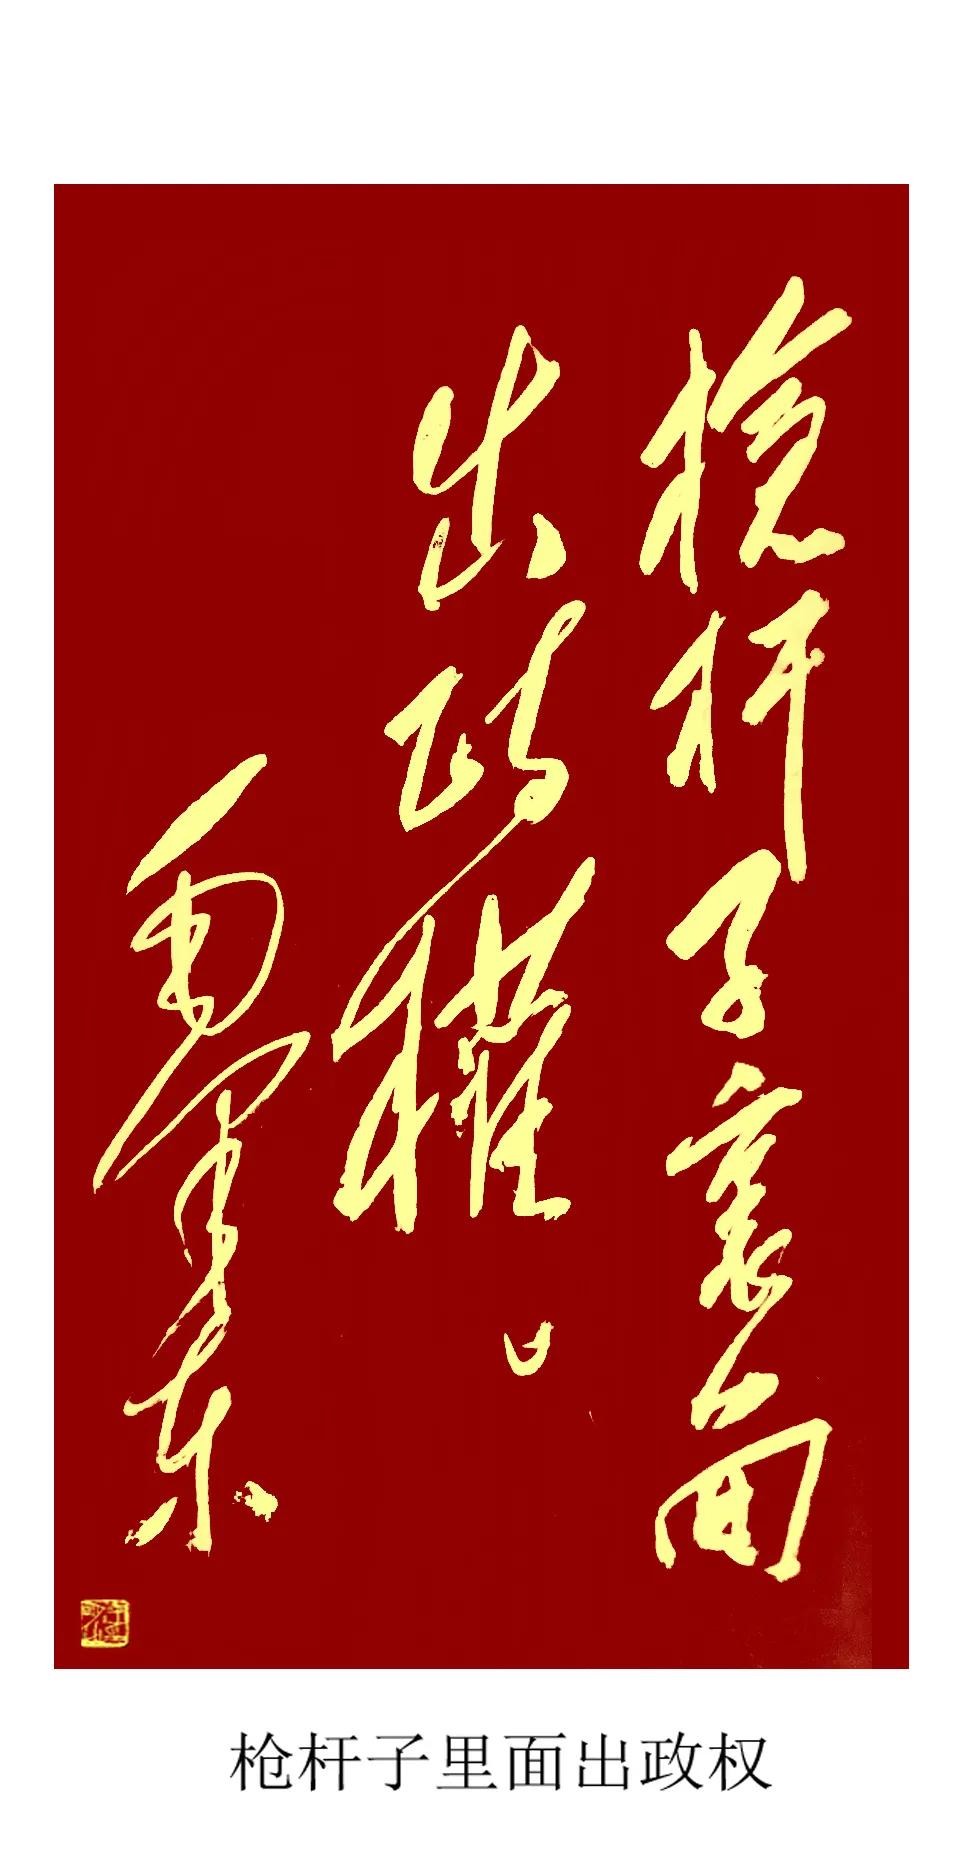 槍杆子裏面
出政權。
毛澤東
枪杆子里面出政权